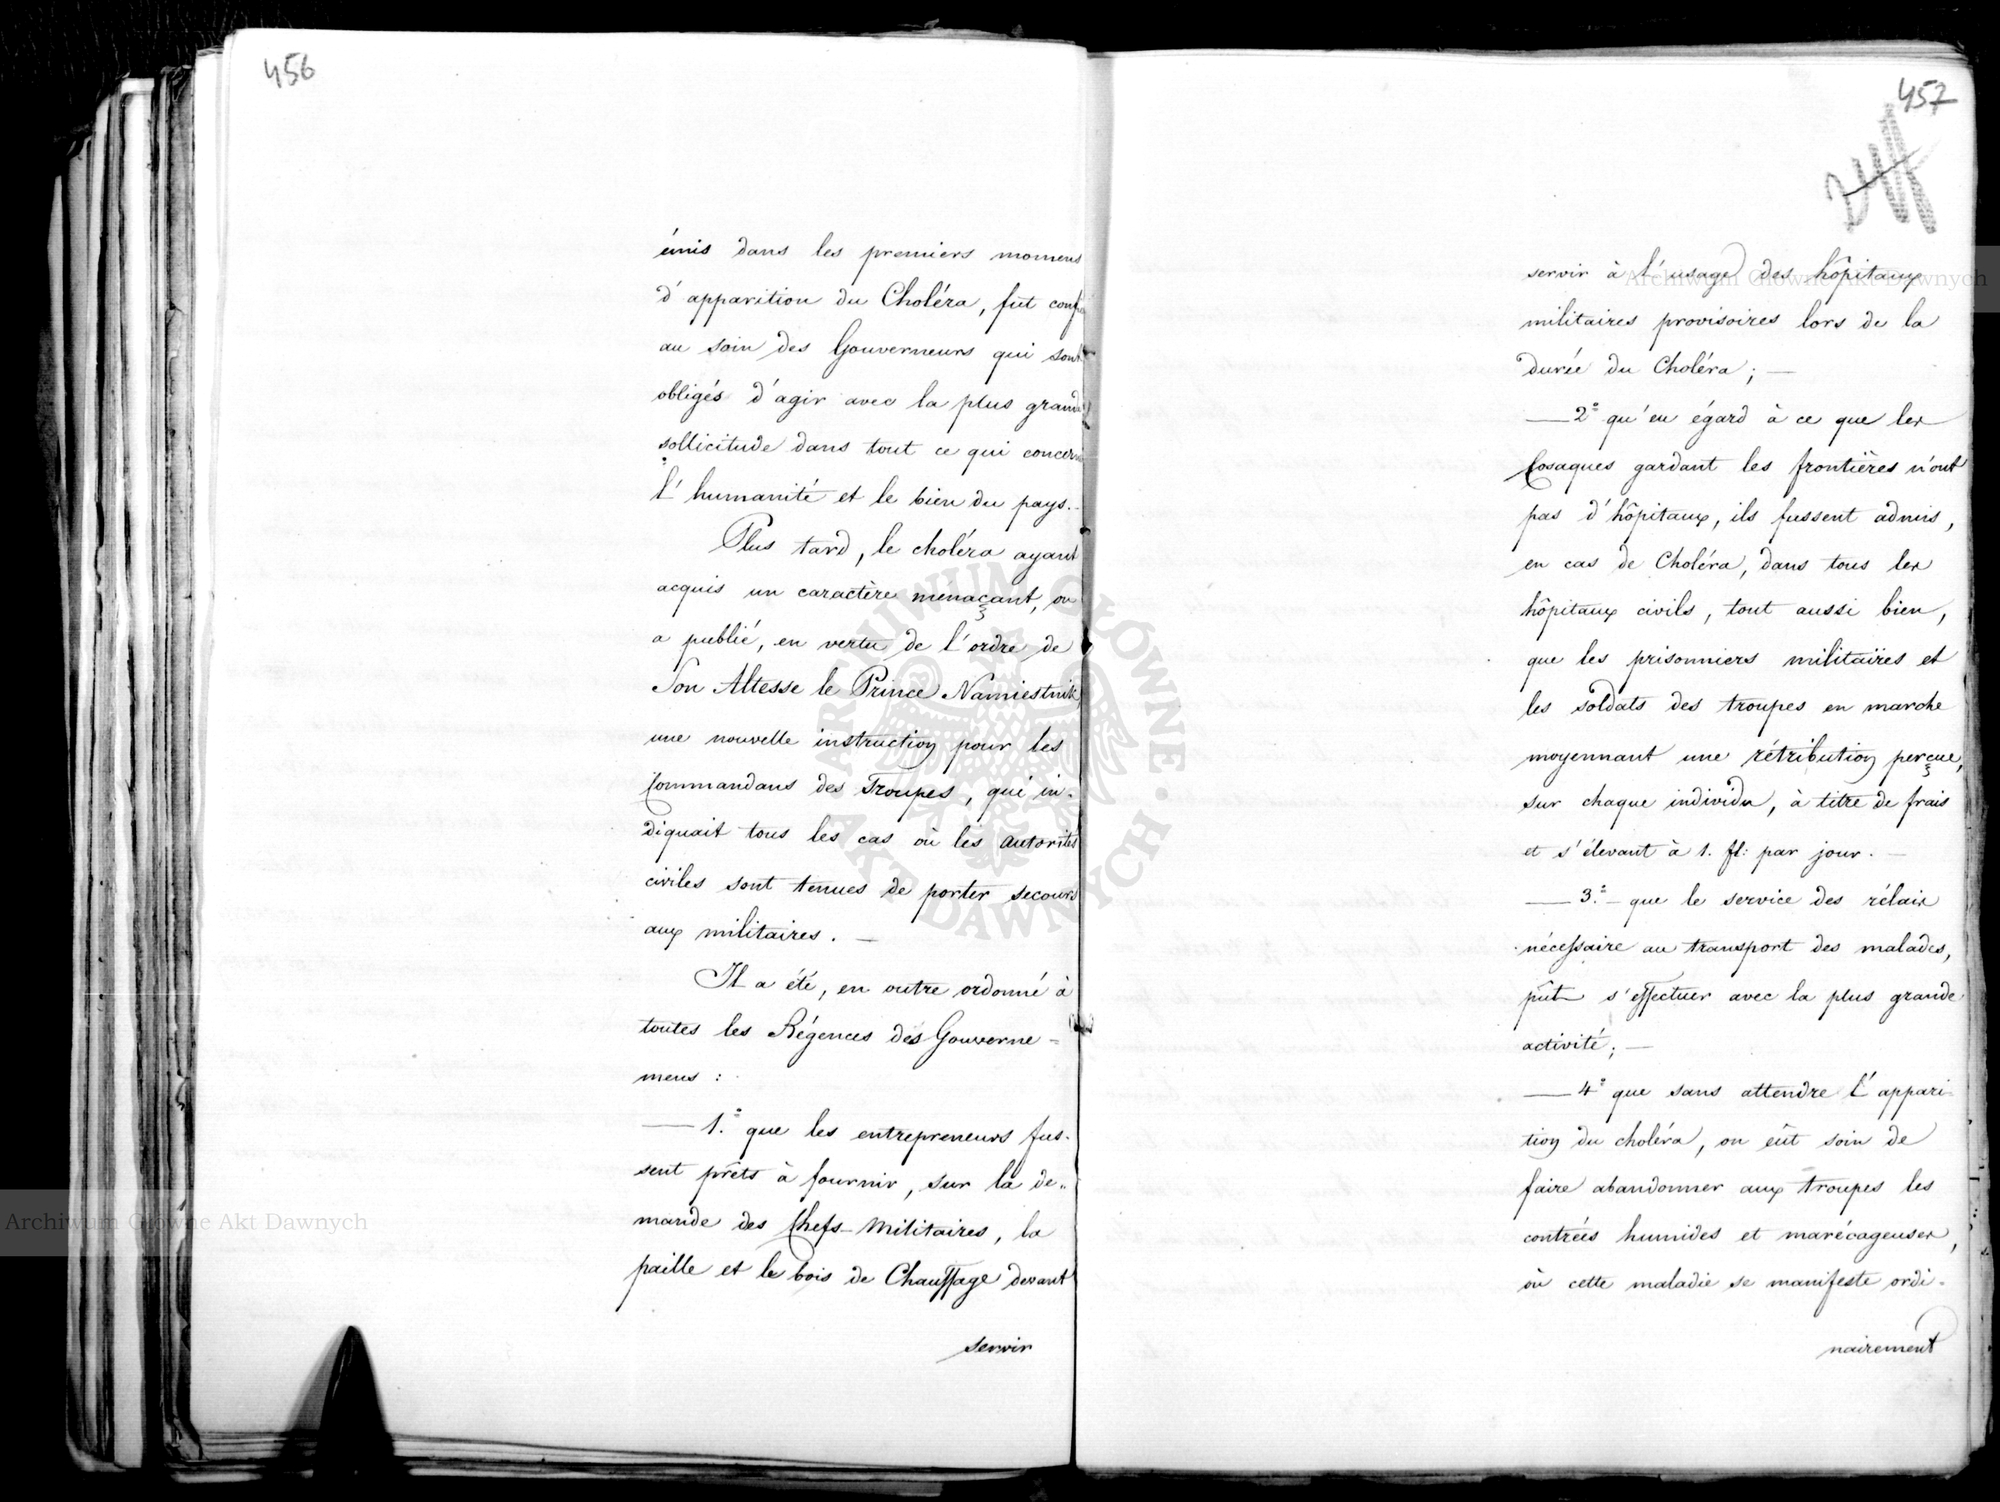 456
émis dans les premiers momens
d'apparition du Choléra, fut confié
au soin des Gouverneurs qui sont
obligés d'agir avec la plus grande
sollicitude dans tout ce qui concerne
l'humanité et le bien du pays.
Plus tard, le choléra ayant
acquis un caractère ménaçant, on
a publié, en vertu de l'ordre de
Son Altesse le Prince Namiestnik,
une nouvelle instruction pour les
Commandans des Troupes, qui in-
diquait tous les cas où les autorités
civiles sont tenues de porter secours
aux militaires. —
Il a été, en outre ordonné à
toutes les Régences des Gouverne=
mens :
— 1.° que les entrepreneurs fus-
sent prêts à fournir, sur la de„
mande des Chefs-Militaires, la
paille et le bois de Chauffage devant
servir
457
servir à l'usage des hôpitaux
militaires provisoires lors de la
durée du Choléra; —
— 2° qu'eu égard à ce que les
Cosaques gardant les frontières n'ont
pas d'hôpitaux, ils fussent admis,
en cas de Choléra, dans tous les
hôpitaux civils, tout aussi bien,
que les prisonniers militaires et
les soldats des troupes en marche
moyennant une rétribution perçue,
sur chaque individu, à titre de frais
et s'élevant à 1. fl: par jour. —
— 3.° — que le service des rélais
nécessaire au transport des malades,
pût s'effectuer avec la plus grande
activité; —
— 4° que sans attendre l'appari-
tion du choléra, on eût soin de
faire abandonner aux troupes les
contrées humides et marécageuses,
où cette maladie se manifeste ordi-
nairement
Archiwum Główne Akt Dawnych
Archiwum Główne Akt Dawnych
ARCHIWUM GŁÓWNE · AKT DAWNYCH ·